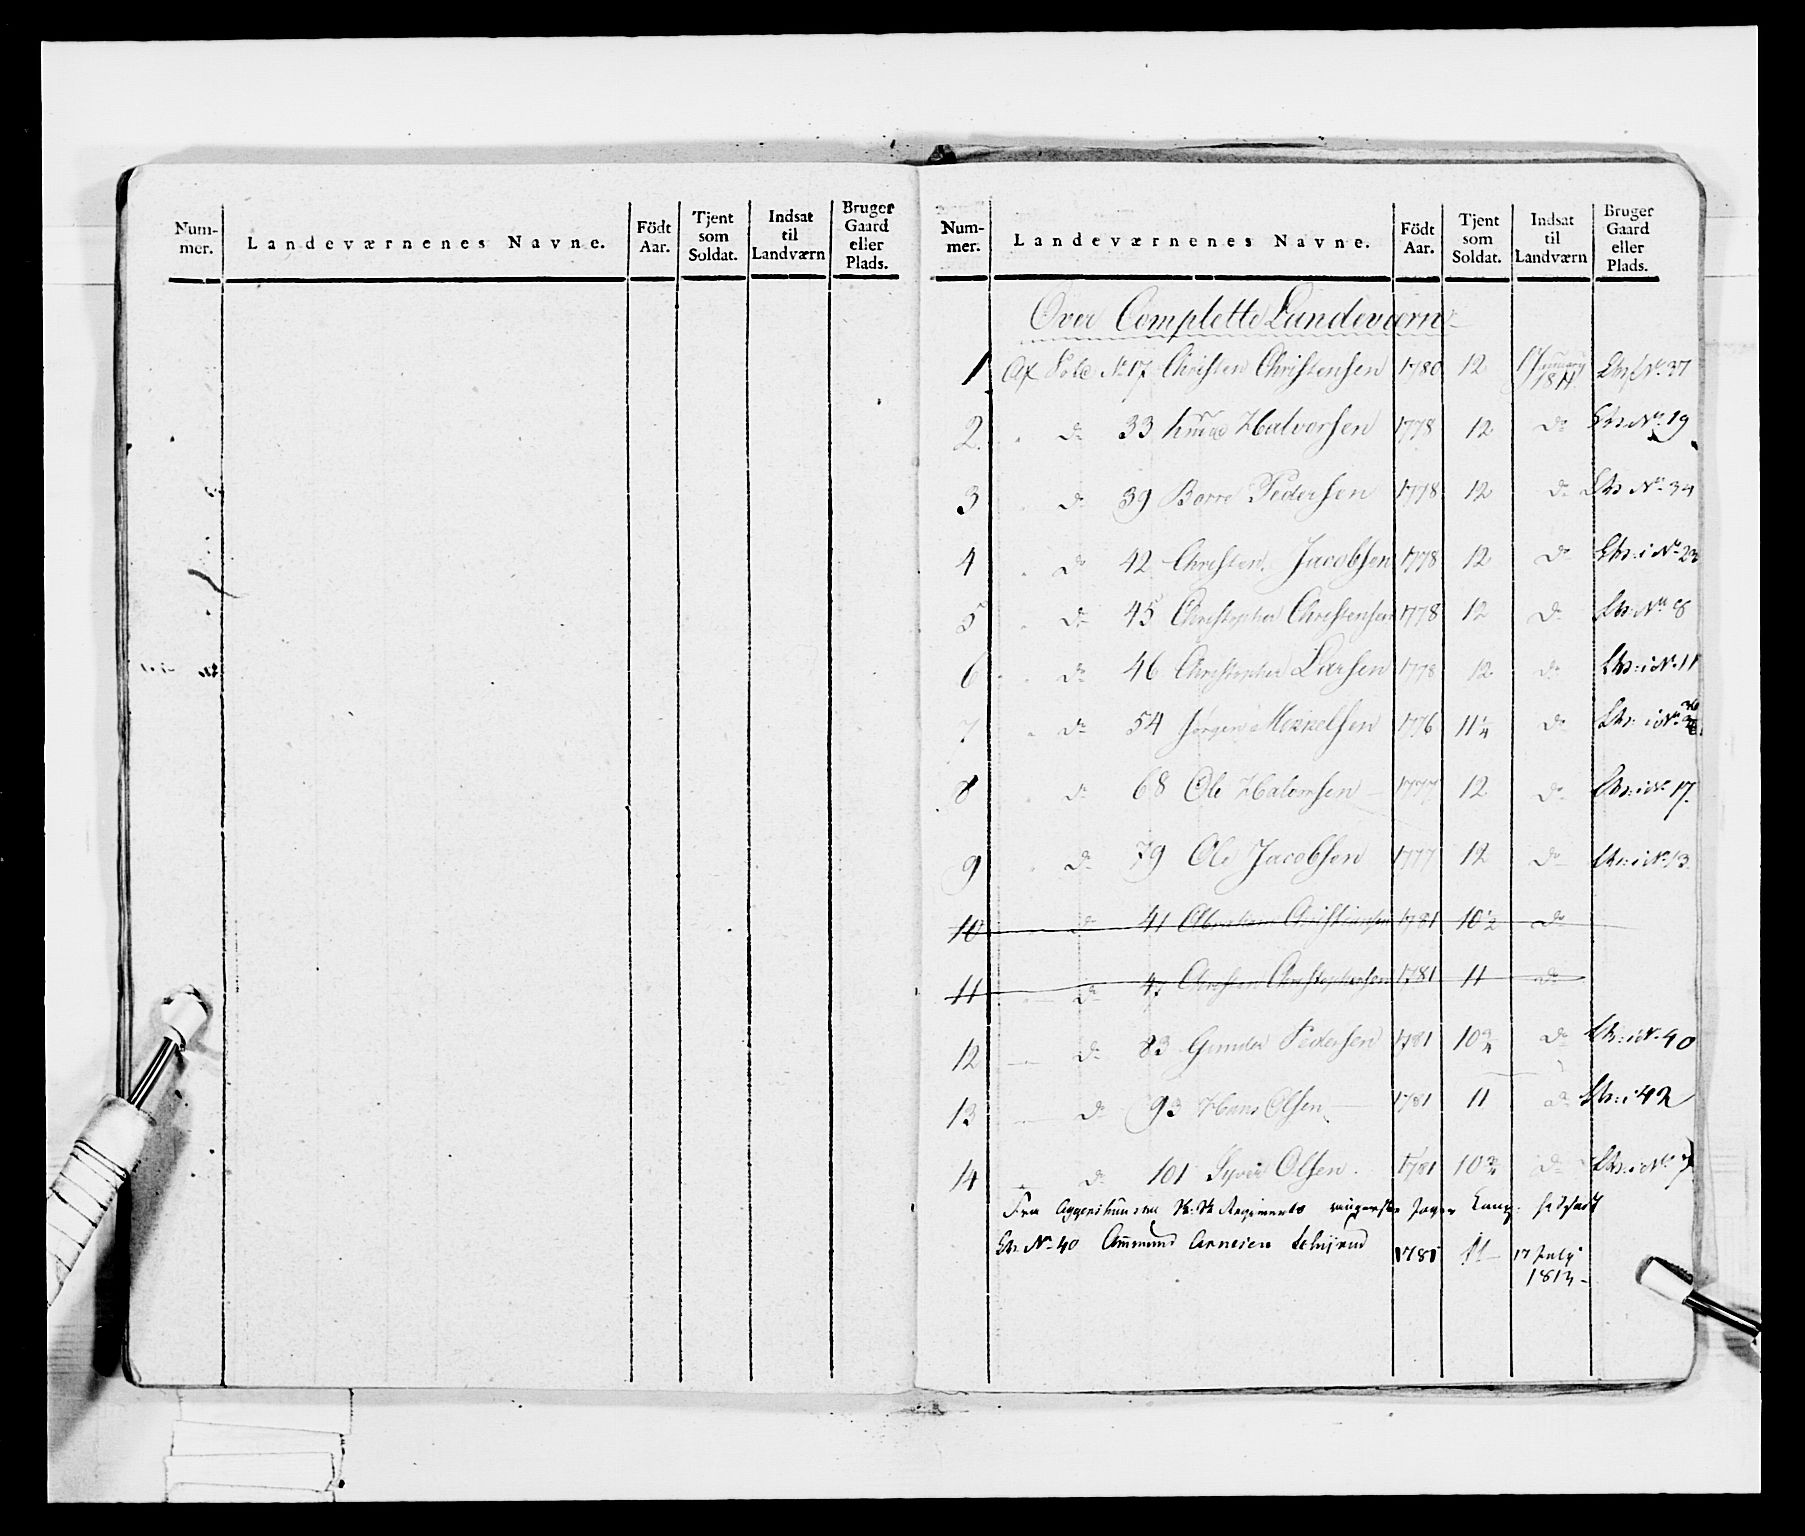 Num-mer. Landeværnenes Navne. Födt Aar. Tjent som Soldat. Indsat til Landværn Bruger Gaard eller Plads.
Num-mer. Landeværnenes Navne. Födt Aar. Tjent som Soldat. Indsat til Landværn Bruger Gaard eller Plads.
Over Complette Landeværn
1 Af Sold No 17 Christen Christensen 1780 12 1 January 1811 No. 37
2. do 33 Knud Halvorsen 1778 12 do No. 19
3 do 39 Borre Pedersen 1778 12 do No. 34
4 do 42 Christen Jacobsen 1778 12 do No. 23
5 do 45 Christopher Christensen 1778 12 do No 8
6 do 46 Christopher Larsen 1778 12 do No. 11
7 do 54 Jörgen Mikkelsen 1776 11 1/4 do
8 do 68 Ole Halvorsen 1777 12 do 17.
9 do 79 Ole Jacobsen 1777 12 do No. 13
10 do 41 Abraham Christiansen 1781 10 1/2 do
11 do 47 Christen Christophersen 1781 11 do
12 do 83 Gunder Pedersen 1781 10 3/4 do No. 40
13 do 93 Hans Olsen 1781 11 do 42
14 do 101 Syver Olsen 1781 10 3/4 do No. 7
Fra Aggershuusiske Regiments Jæger Comp.
No. 40 Ammund Arnesen 1781 11 17 July 1813